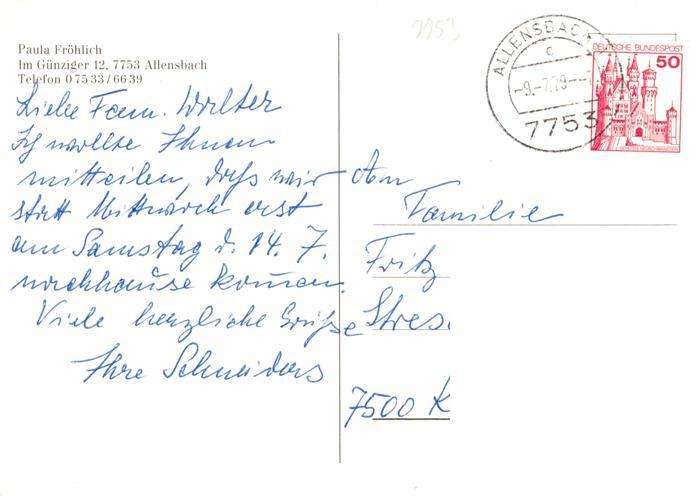 7753
Paula Fröhlich
Im Günziger 12, 7753 Allensbach
Telefon 07533/6639
ALLENSBACH
c
-9.-7.79--
7753
DEUTSCHE BUNDESPOST
50
Liebe Fam. Walter
Ich wollte Ihnen
mitteilen, daß wir
statt Mittwoch erst
am Samstag d. 14. 7.
nachhause komen.
Viele herzliche Grüße
Ihre Schneiders
An
Familie
Fritz
Stres.
7500 K